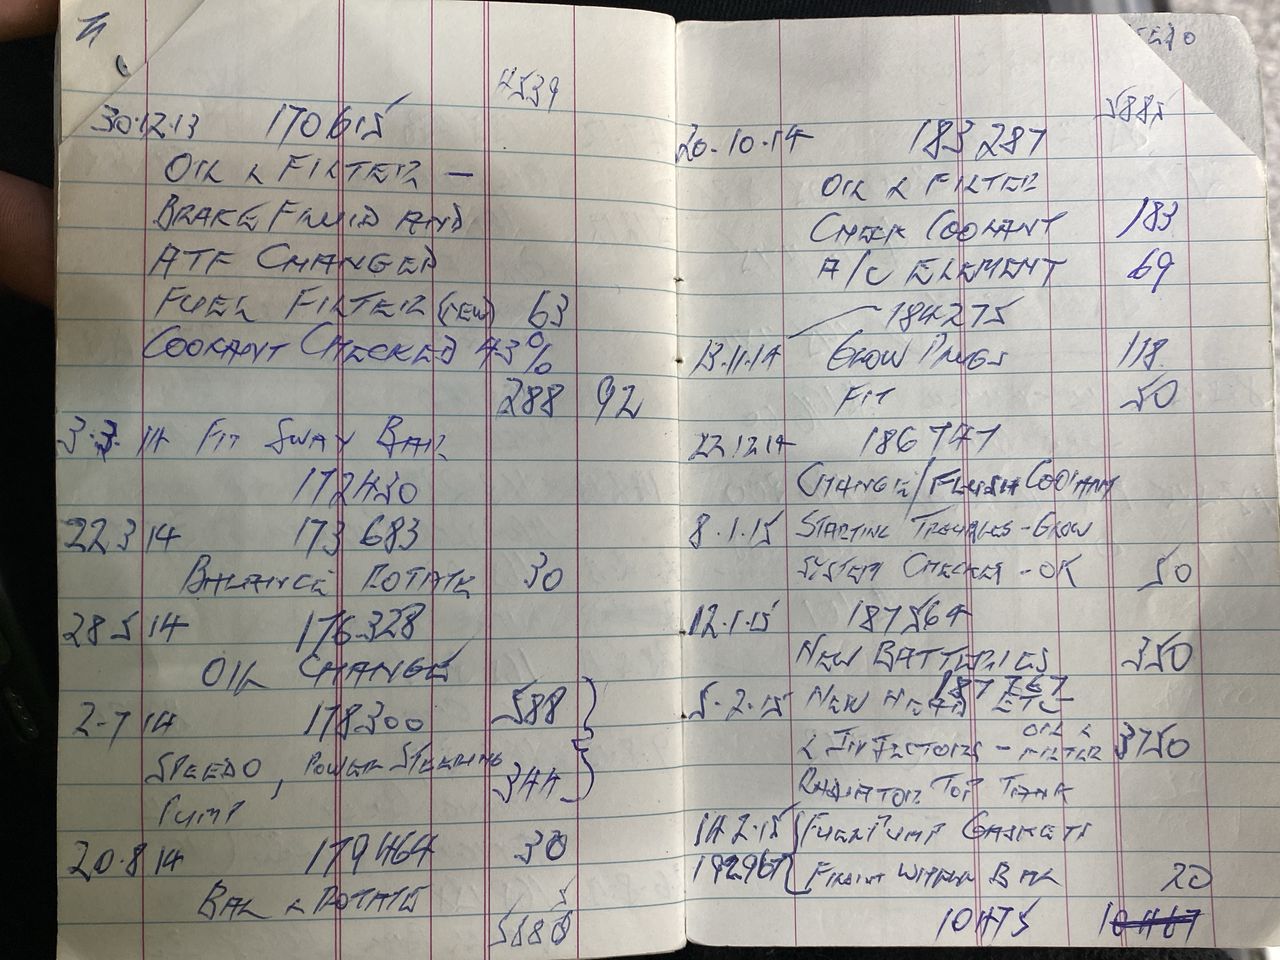 4539
30.12.13 170615
OIL & FILTER —
BRAKE FLUID AND
ATF CHANGED
FUEL FILTER (NEW) 63
COOLANT CHECKED 43%
288 92
3.3.14 FIT SWAY BAR
172450
22 3 14 173 683
BALANCE ROTATE 30
28 5 14 176328
OIL CHANGE
2-7 14 178300 588
SPEEDO, POWER STEERING 344
PUMP
20.8 14 179464 30
BAL & ROTATE
5885
5885
20.10.14 183 287
OIL & FILTER
CHECK COOLANT 183
A/C ELEMENT 69
184275
13.11.14 GLOW PLUGS 118
FIT 50
22.12.14 186747
CHANGE/FLUSH COOLANT
8.1.15 STARTING TROUBLES - GLOW
SYSTEM CHECKED - OK 50
12.1.15 187564
NEW BATTERIES 350
187767
5.2.15 NEW HEAD ETC
& INJECTORS - OIL & FILTER 3750
RADIATOR TOP TANK
14.2.15 FUEL PUMP GASKETS
192967 BAL 20
10475 10467